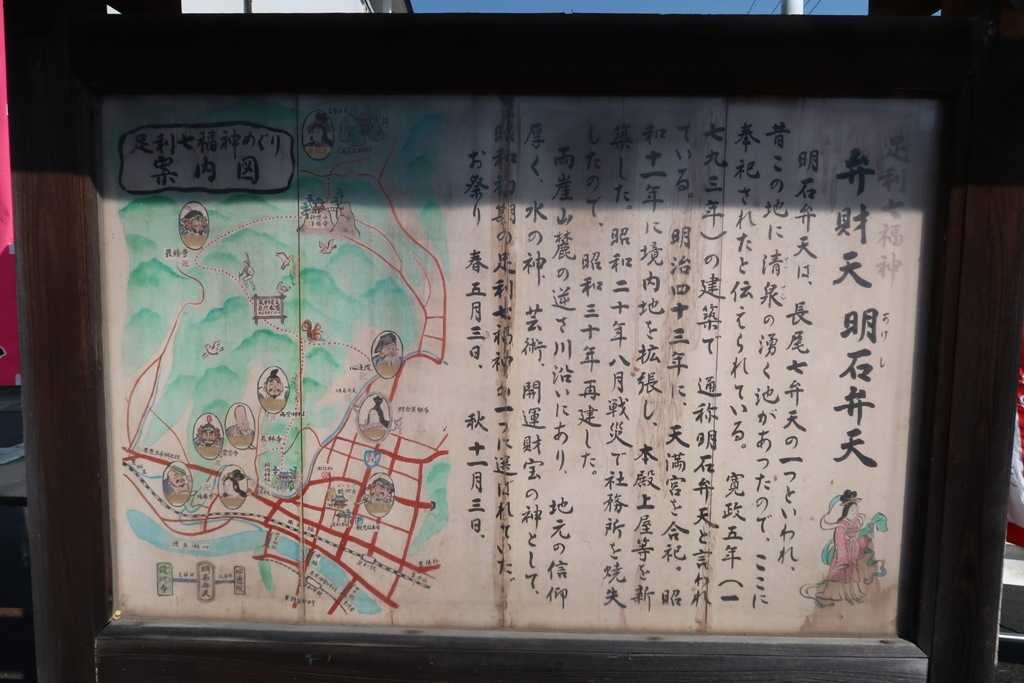 足利七福神
弁財天 明石弁天
あけし
明石弁天は、長尾七弁天の一つといわれ、
昔この地に清泉の湧く池があったので、ここに
奉祀されたと伝えられている。寛政五年（一
七九三年）の建築で 通称明石弁天と言われ
ている。明治四十三年に、天満宮を合祀。昭
和十一年に境内地を拡張し、本殿上屋等を新
築した。昭和二十年八月戦災で社務所を焼失
したので、昭和三十年再建した。
両崖山麓の逆さ川沿いにあり、地元の信仰
厚く、水の神、芸術、開運財宝の神として、
昭和初期の足利七福神の一つに選ばれていた。
お祭り 春 五月三日、 秋 十一月三日、
足利七福神めぐり
案内図
長林寺
心通院
明石弁天